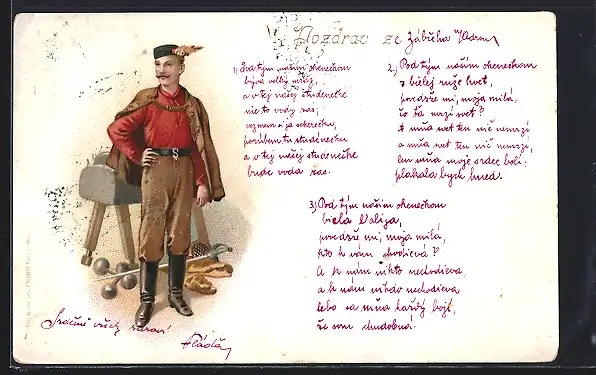 Pozdrav ze Zábřeha
1.) Pod tým našim okenečkom
býva velký mráz,
a v tej našej studénečke
nie to vody zas;
vezmem si ja sekerečku,
porúbem tu studénečku
a v tej našej studénečke
bude voda zas.
2.) Pod tým našim okenečkom
z bielej ruže kvet,
povedzže mi, moja milá,
čo ťa mrzí svet?
A mňa svet ten nič nemrzí
a mňa svet ten nič nemrzí,
len mňa moje srdce bolí:
plakala bych hned.
3.) Pod tým našim okenečkom
bielá ľalija,
povedzže mi, moja milá,
kto k vám chodieva?
A k nám nikto nechodieva,
a k nám nikdo nechodieva
lebo sa mňa každý bojí,
že som chudobná.
Srdečně všecky zdraví